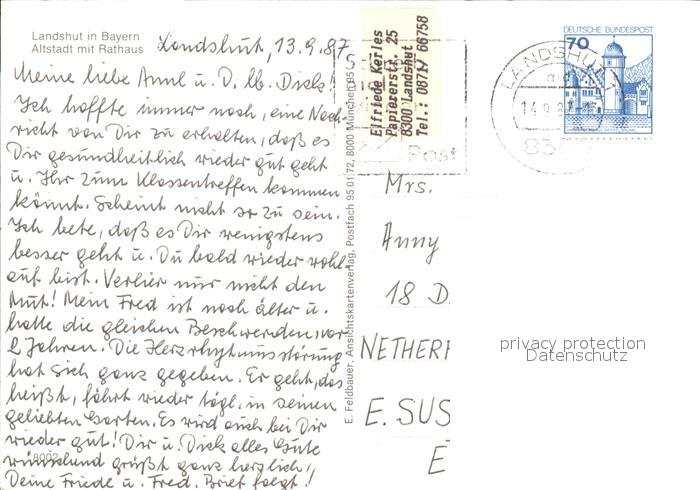 Landshut in Bayern
Altstadt mit Rathaus
Landshut, 13.9.87
Meine liebe Anni u. D. lb. Dick!
Ich hoffte immer noch, eine Nach-
richt von Dir zu erhalten, daß es
Dir gesundheitlich wieder gut geht
u. Ihr zum Klassentreffen kommen
könnt. Scheint nicht so zu sein.
Ich bete, daß es Dir wenigstens
besser geht u. Du bald wieder wohl
auf bist. Verlier nur nicht den
Mut! Mein Fred ist noch älter u.
hatte die gleichen Beschwerden, vor
2 Jahren. Die Herzrhytmusstörung
hat sich ganz gegeben. Er geht, das
heißt, fährt wieder tägl. in seinen
geliebten Garten. Es wird auch bei Dir
wieder gut! Dir u. Dick alles Gute
wünschend grüßt ganz herzlich
Deine Friede u. Fred. Brief folgt!
8002
E. Feldbauer, Ansichtskartenverlag, Postfach 95 01 72, 8000 München 95
Elfriede Kerles
Papiererstr. 25
8300 Landshut
Tel.: 0871/ 66758
Post
DEUTSCHE BUNDESPOST
70
LANDSHUT
14.9.8
83
Mrs.
Anny
18 D
NETHERF
E. SUS
E
privacy protection
Datenschutz